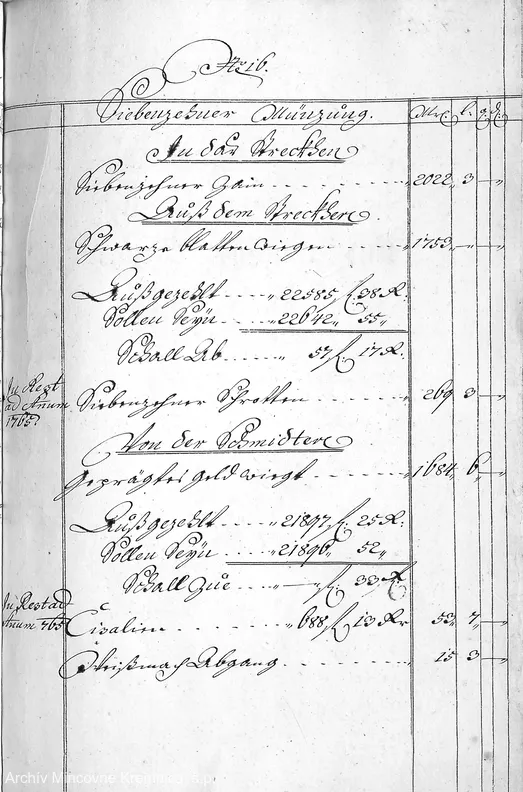 No 16.
Siebenzehner Münzung. Mk. l. q. d.
In das Strecken
Siebenzehner Zain 2022 3 —
Auß dem Strecken
Schwarze blatten wiegen 1753 „ —
Außgezehlt 22585 f. 38 K.
Sollen Seyn 22642 „ 55 „
Schall Ab 57 f. 17 K.
In Rest
ad Anum
1765
Siebenzehner Schrotten 269 3 —
Von der Schmidten
Geprägtes Geld wiegt 1684 6 —
Außgezehlt 21897 f. 25 K.
Sollen Seyn 21896 „ 52 „
Schall Zue — f. 33 K
In Rest ad
Anum 765
Cisalien 688 f. 13 Kr 53 7 —
Weißmach Abgang 15 3 —
Archiv Mincovne Kremnica